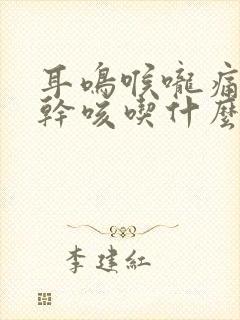 耳鳴喉嚨痛
幹咳喫什麼
李建紅